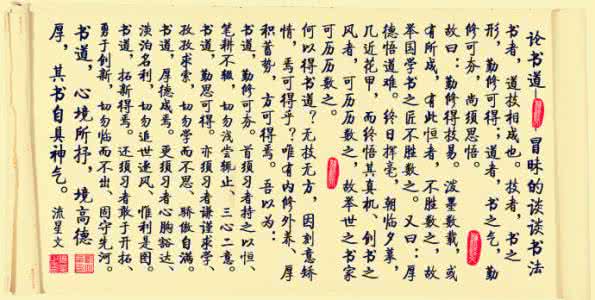 论书道——冒昧的谈谈书法
书者,道技相成也。技者,书之
形,勤修可得;道者,书之气,勤
修可夯,尚须思悟。
故曰:勤修得技易。泼墨数载,或
有所成,有此恒者,不胜数之,故
举国学书之匠不胜数之。又曰:厚
德悟道难。终日挥毫,朝临夕摹,
几近花甲,而终悟其真机、创书之
风者,可历历数之,故举世之书家
可历历数之。
何以得书道?无技无方,因刻意矫
情,焉可得乎?唯有内修外养、厚
积蓄势,方可得焉。吾以为:
书道,勤修可夯。首须习者持之以恒、
笔耕不辍,切勿浅尝辄止、三心二意。
书道,勤思可得。亦须习者谦谨求学、
孜孜求索,切勿学而不思、骄傲自满。
书道,厚德成焉。更须习者心胸豁达、
淡泊名利,切勿追世逐风、惟利是图。
书道,拓新得焉。还须习者敢于开拓、
勇于创新,切勿临而不出、固守先河。
书道,心境所抒,境高德
厚,其书自具神气。
流星文